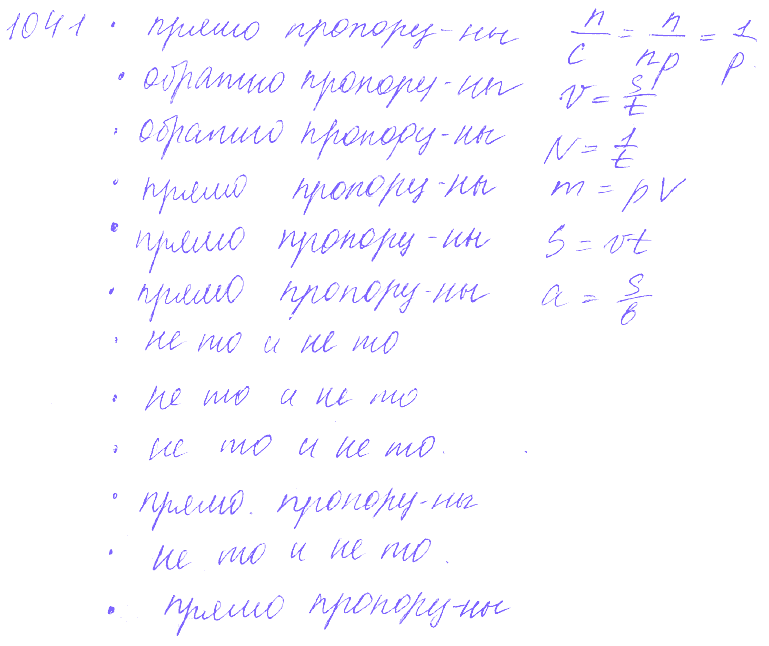 1041 · прямо пропорц-ны n/c = n/np = 1/p
· обратно пропорц-ны v = S/t
· обратно пропорц-ны N = 1/t
· прямо пропорц-ны m = ρV
· прямо пропорц-ны S = vt
· прямо пропорц-ны a = S/в
· не то и не то
· не то и не то
· не то и не то.
· прямо. пропорц-ны
· не то и не то.
· прямо пропорц-ны